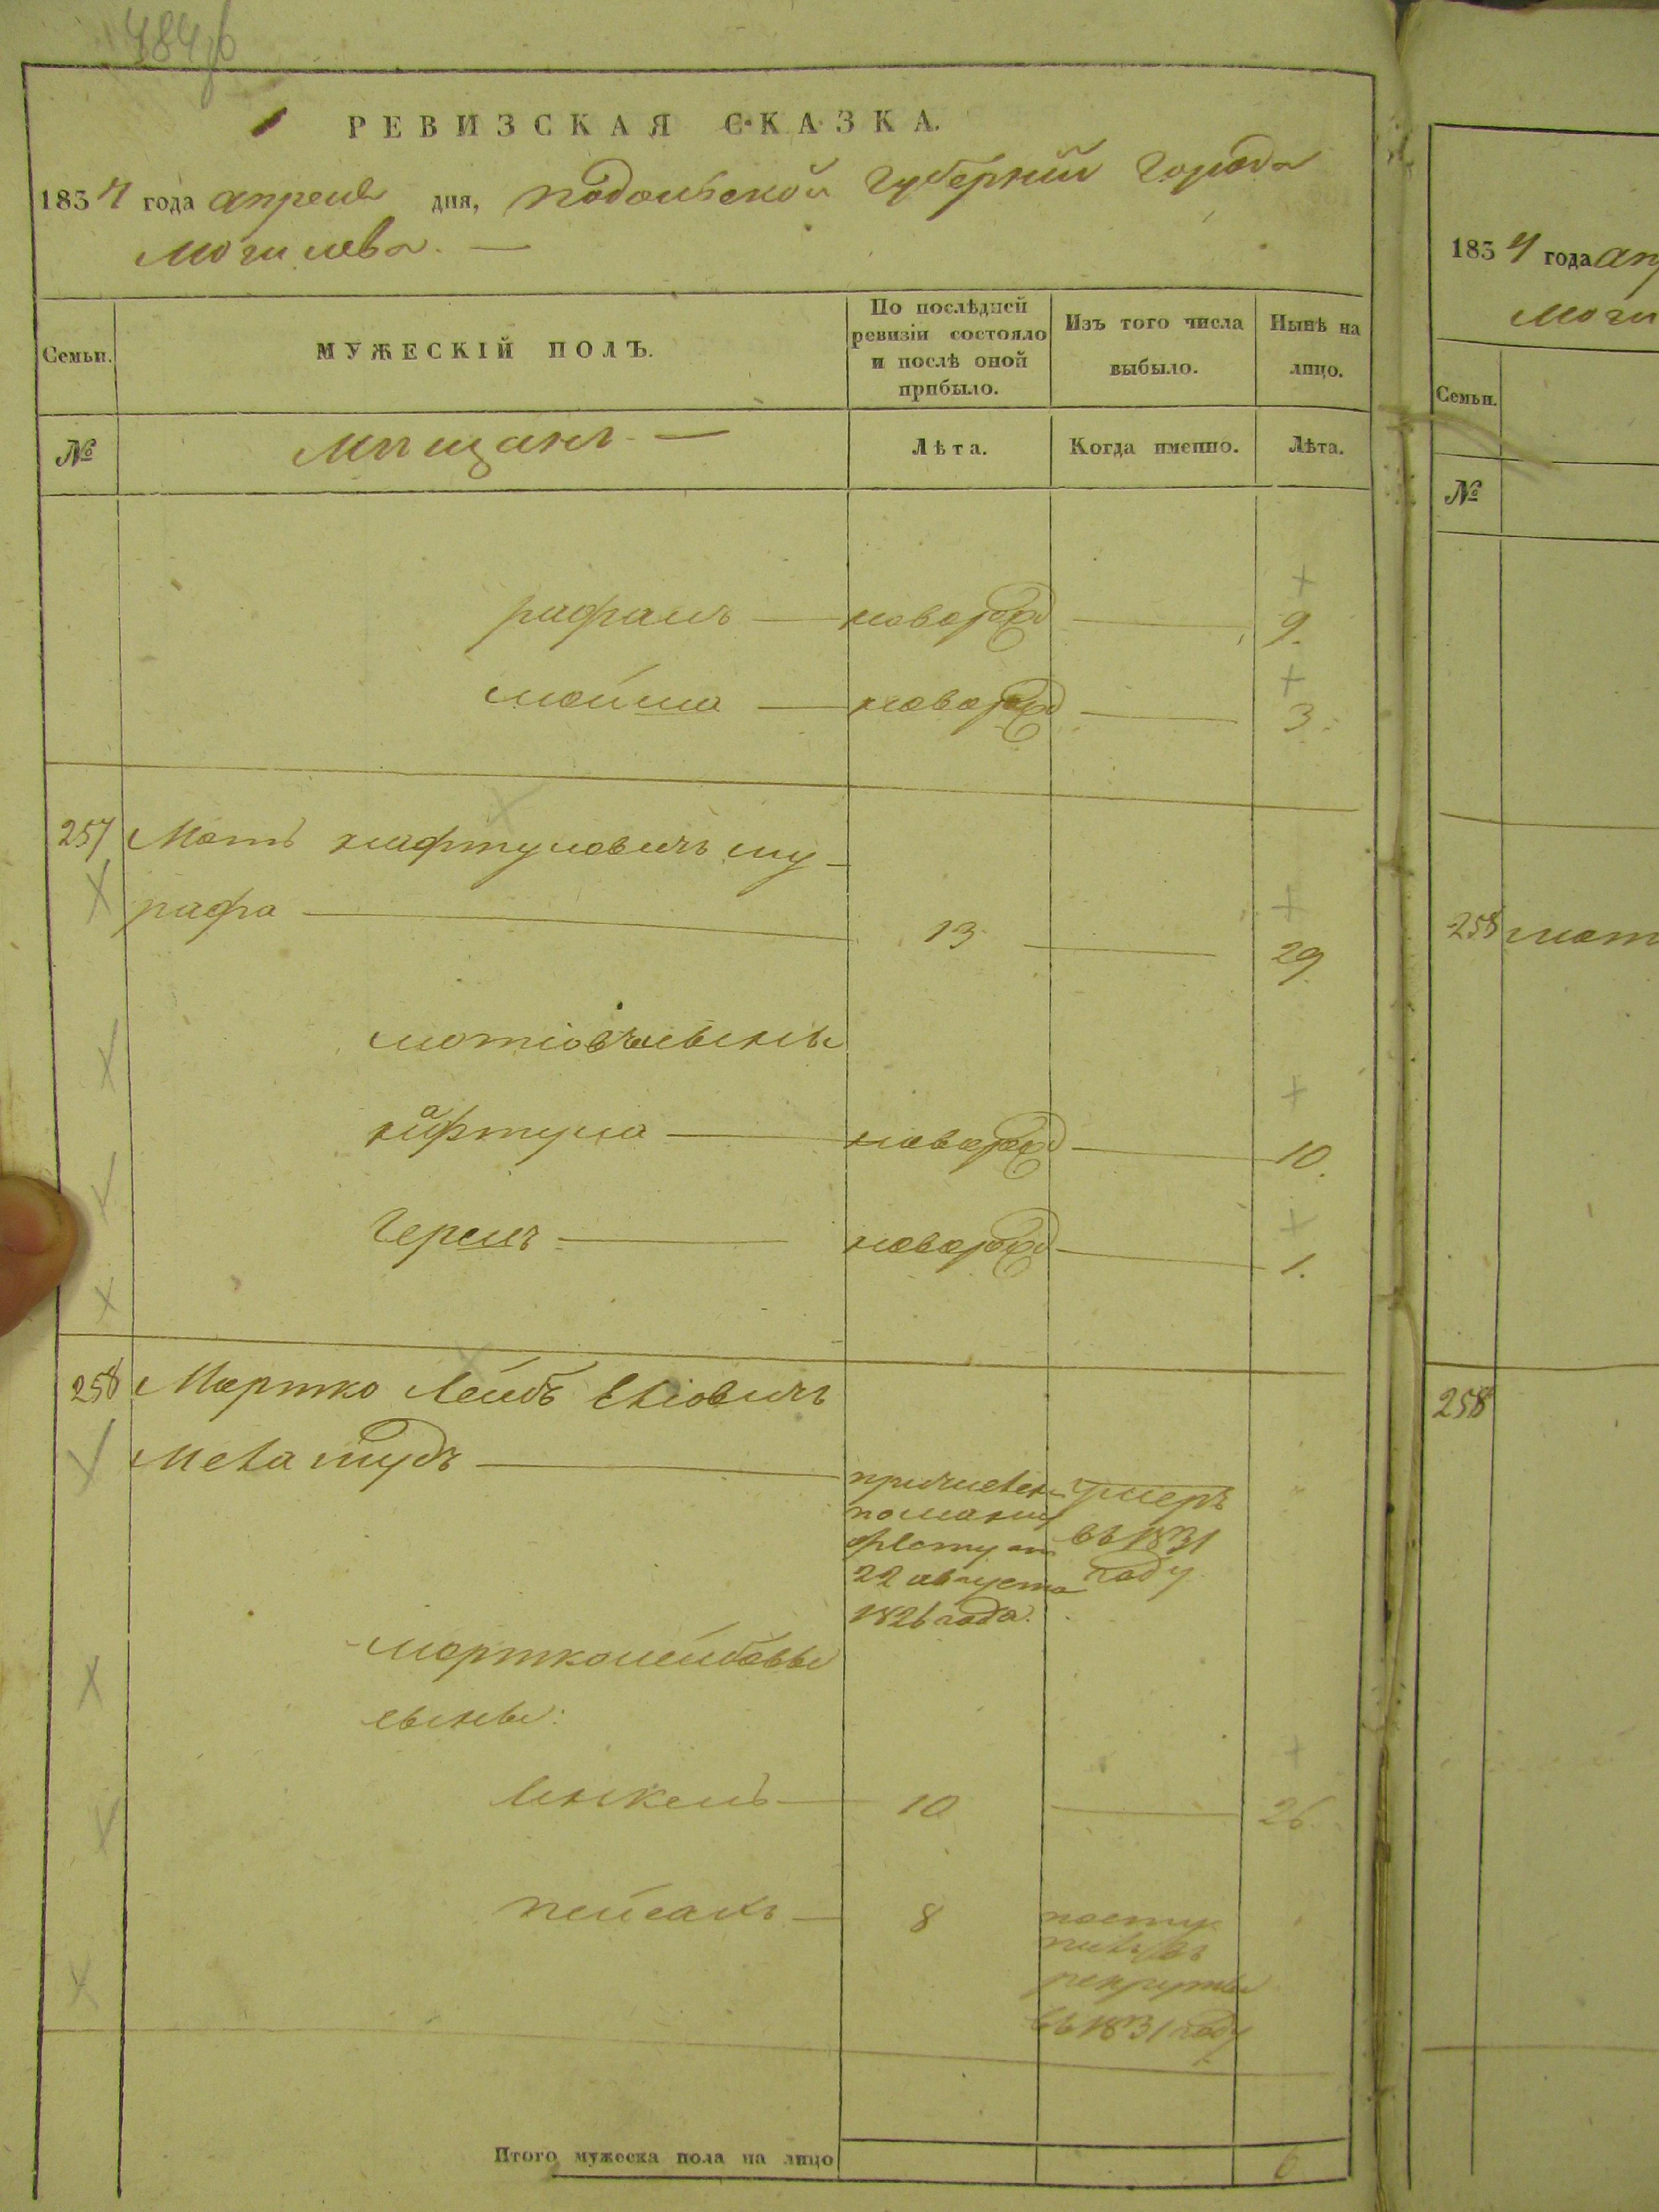 484
РЕВИЗСКАЯ СКАЗКА.
1834 года апреля дня, подольской губернии города
могилева. —
Семьи.
МУЖЕСКІЙ ПОЛЪ.
По послѣдней ревизіи состояло и послѣ оной прибыло.
Изъ того числа выбыло.
Нынѣ на лицо.
№
Мещане —
Лѣта.
Когда именно.
Лѣта.
рафаилъ — наворож — 9.
мойша — наворож — 3.
257 Мотъ нафтуловичъ шу-
рафа — 13 — 29
мотіовы сыны
нафтула — новорож — 10.
Герсшъ — новорож — 1.
258 Мортко Лейбъ
причислен
по
указу от
22 августа
1826 года.
умеръ
въ 1831
году
мортколейбовы
сыны:
Янкель — 10 — 26.
пейсахъ — 8
посту
пилъ въ
рекруты
въ 1831 году
Итого мужеска пола на лицо 6
1834 года ап
моги
Семьи.
№
258 мот
258